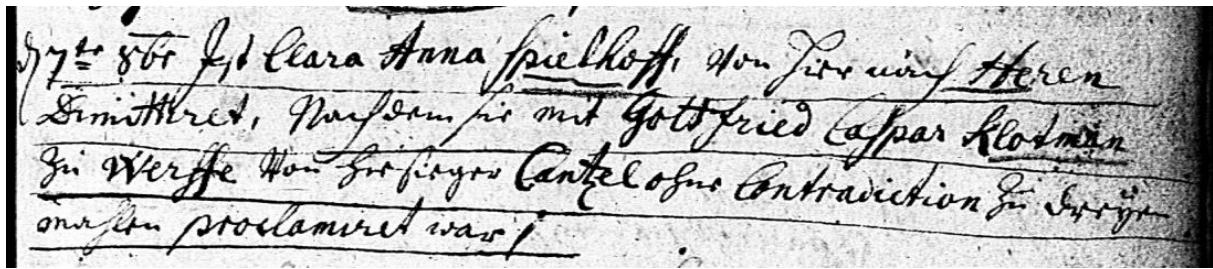 d 7te 8br Ist Clara Anna Spielhoff, von hier nach Heren
Dimittiret, Nachdem sie mit Gottfried Caspar Klotman
zu Werffe von hiesieger Cantzel ohne Contradiction zu dreyen
mahlen proclamiret war /